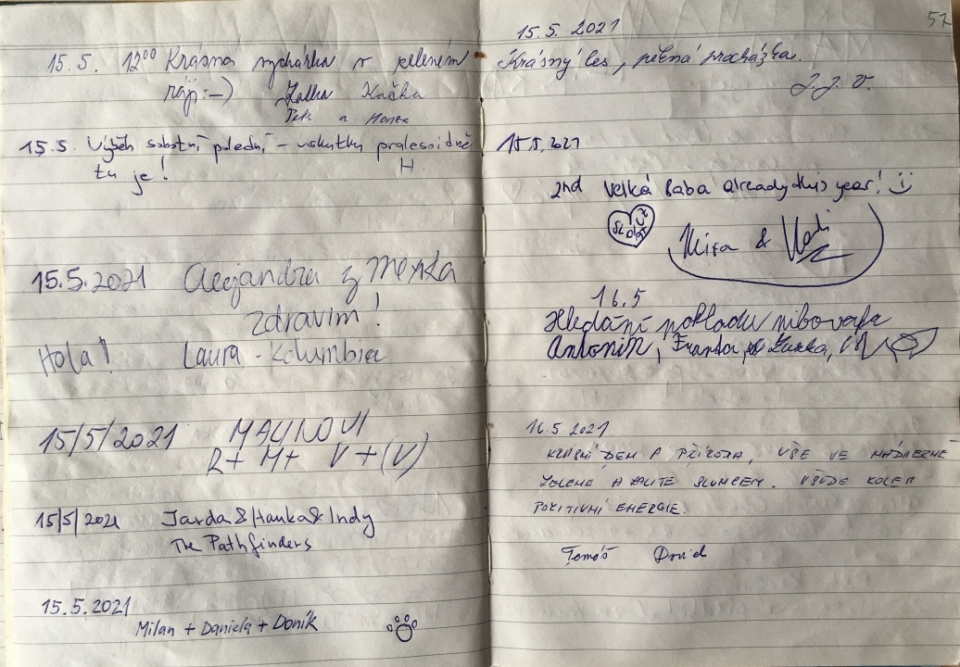 15.5. 12⁰⁰ Krásná vycházka v zeleném
ráji :-) Kačka
a Honza
15.5. Výběh sobotní polední – vskutku pralesoidně
tu je! H.
15.5.2021 Alejandra z Mexika
zdravím!
Hola! Laura - Kolumbia
15/5/2021 MALINOVI
R + M + V + (V)
15/5/2021 Jarda & Hanka & Indy
The Pathfinders
15.5.2021
Milan + Daniela + Doník
57
15.5.2021
Krásný les, pěkná procházka.
J. J. V.
15.5.2021
2nd Velká Baba already this year!
Míra &
16.5
Hledání pokladu
Antonín, Franta,
16.5 2021
KRÁSNÝ DEN A PŘÍRODA, VŠE VE NÁDHERNĚ
ZELENÉM A ZALITÉ SLUNCEM. VŠUDE KOLEM
POZITIVNÍ ENERGIE.
Tomáš David